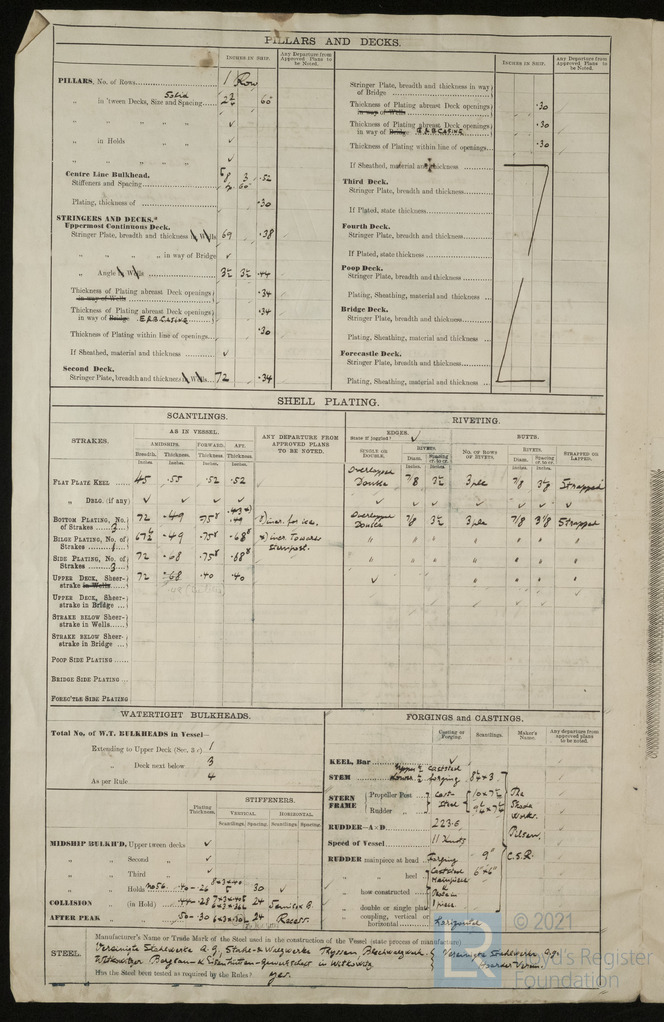 PILLARS AND DECKS.
INCHES IN SHIP.
Any Departure from Approved Plans to be Noted.
PILLARS, No. of Rows 1 Row
„ in 'tween Decks, Size and Spacing Solid 60
„ „ „ „
„ in Holds ✓
„ „ „ „ ✓
Centre Line Bulkhead.
Stiffeners and Spacing 3 .52
60
Plating, thickness of .30
STRINGERS AND DECKS.
Uppermost Continuous Deck.
Stringer Plate, breadth and thickness in Wells 69 .38
„ „ „ „ in way of Bridge ✓
„ Angle in Wells 3½ 3½ .44
Thickness of Plating abreast Deck openings in way of Wells .34
Thickness of Plating abreast Deck openings in way of Bridge E&B CASING .34
Thickness of Plating within line of openings .30
If Sheathed, material and thickness ✓
Second Deck.
Stringer Plate, breadth and thickness in Wells 72 .34
INCHES IN SHIP.
Any Departure from Approved Plans to be Noted.
Stringer Plate, breadth and thickness in way of Bridge
Thickness of Plating abreast Deck openings in way of Wells .30
Thickness of Plating abreast Deck openings in way of Bridge E&B CASING .30
Thickness of Plating within line of openings .30
If Sheathed, material and thickness
Third Deck.
Stringer Plate, breadth and thickness
If Plated, state thickness
Fourth Deck.
Stringer Plate, breadth and thickness
If Plated, state thickness
Poop Deck.
Stringer Plate, breadth and thickness
Plating, Sheathing, material and thickness
Bridge Deck.
Stringer Plate, breadth and thickness
Plating, Sheathing, material and thickness
Forecastle Deck.
Stringer Plate, breadth and thickness
Plating, Sheathing, material and thickness
SHELL PLATING.
SCANTLINGS.
RIVETING.
STRAKES.
AS IN VESSEL.
AMIDSHIPS. FORWARD. AFT.
Breadth. Thickness. Thickness. Thickness.
Inches. Inches. Inches. Inches.
ANY DEPARTURE FROM APPROVED PLANS TO BE NOTED.
EDGES.
State if joggled? ✓
SINGLE OR DOUBLE.
RIVETS.
Diam. Spacing cr. to cr.
Inches. Inches.
BUTTS.
NO. OF ROWS OF RIVETS.
RIVETS.
Diam. Spacing cr. to cr.
Inches. Inches.
STRAPPED OR LAPPED.
FLAT PLATE KEEL 45 .55 .52 .52 Overlapped Double 7/8 3½ 7/8 Strapped
„ DBLG. (if any) ✓ ✓ ✓ ✓
BOTTOM PLATING, No. of Strakes 3 72 .49 .75 .49 incr. for ice. Overlapped Double 7/8 3½ 7/8 3⅛ Strapped
BILGE PLATING, No. of Strakes .49 .75 .68 incr. towards Sternpost. „ „ „ „ „
SIDE PLATING, No. of Strakes 3 72 .68 .75 .68 „ „ „ „ „
UPPER DECK, Sheerstrake in Wells 72 .68 .40 .40 ✓ „ „ „ „
UPPER DECK, Sheerstrake in Bridge
STRAKE BELOW Sheerstrake in Wells
STRAKE BELOW Sheerstrake in Bridge
POOP SIDE PLATING
BRIDGE SIDE PLATING
FOREC'TLE SIDE PLATING
WATERTIGHT BULKHEADS.
Total No. of W.T. BULKHEADS in Vessel—
Extending to Upper Deck 1
„ Deck next below 3
As per Rule 4
Plating Thickness.
STIFFENERS.
VERTICAL. HORIZONTAL.
Scantlings. Spacing. Scantlings. Spacing.
MIDSHIP BULK'D, Upper tween decks ✓
„ „ Second „ ✓
„ „ Third „ ✓
„ „ Holds .40-.26 30 ✓
COLLISION „ (in Hold) 24
AFTER PEAK „ „ .50-.30 24 Recess.
FORGINGS and CASTINGS.
Casting or Forging.
Scantlings.
Maker's Name.
Any departure from approved plans to be noted.
KEEL, Bar ✓
STEM Upper ½ Cast steel
Lower ½ forging
STERN FRAME
Propeller Post Cast Steel
Rudder „
The Skoda Works.
Pilsen.
C.S.R.
RUDDER—A × D 223.6
Speed of Vessel 11 Knots
RUDDER mainpiece at head forging 9"
„ „ heel Cast steel 6"x6"
Mainpiece
„ how constructed
„ double or single plate 1 piece
„ coupling, vertical or horizontal horizontal
STEEL.
Manufacturer's Name or Trade Mark of the Steel used in the construction of the Vessel (state process of manufacture)
Vereinigte Stahlwerke A.G., Stahl- & Walzwerke Thyssen Vereinigte Stahlwerke A.G.
Witkowitzer Bergbau- & Eisenhütten-Gewerkschaft in Witkowitz Hoerder Verein.
Has the Steel been tested as required by the Rules? yes.
© 2021
LR
Lloyd's Register
Foundation